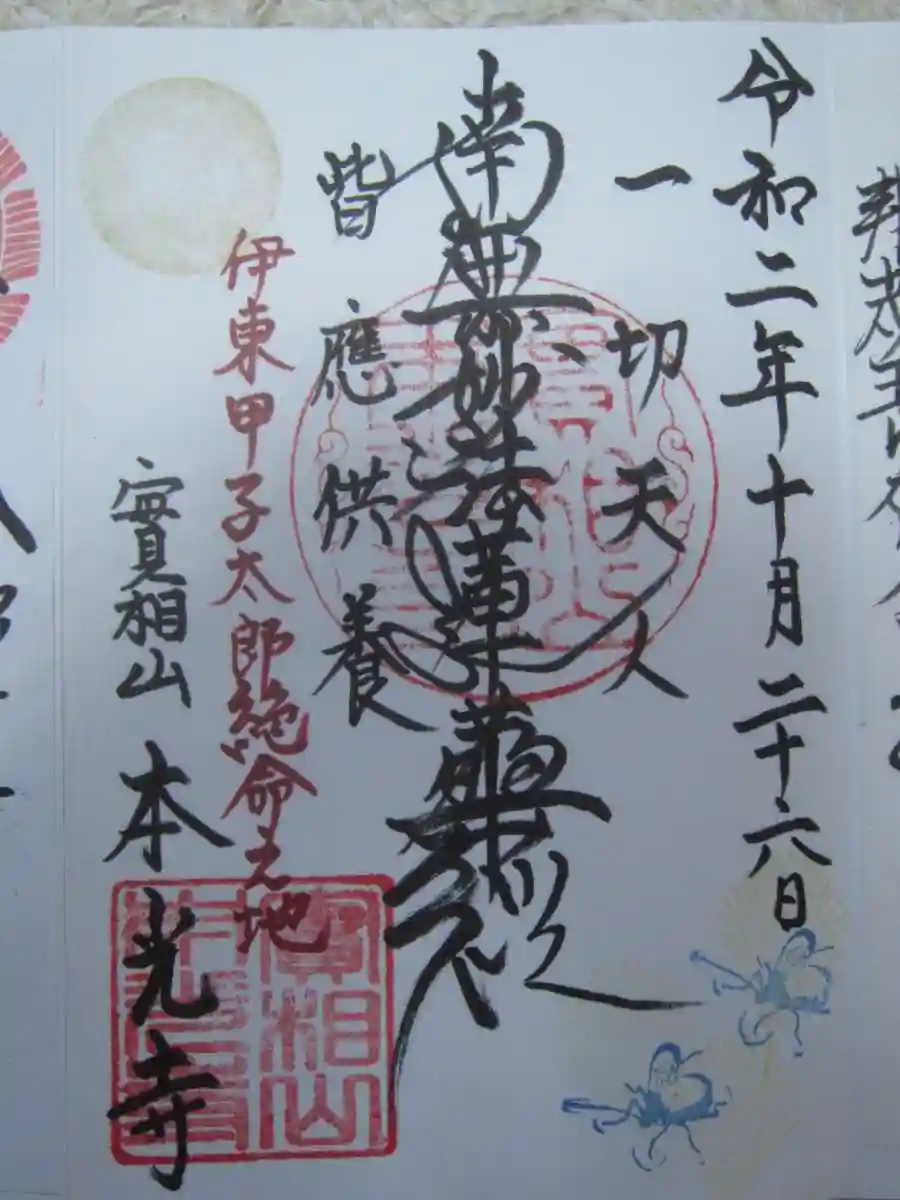 令和二年十月二十六日
一切天人
南無妙法蓮華経
皆應供養
伊東甲子太郎絶命之地
實相山 本光寺
實相山